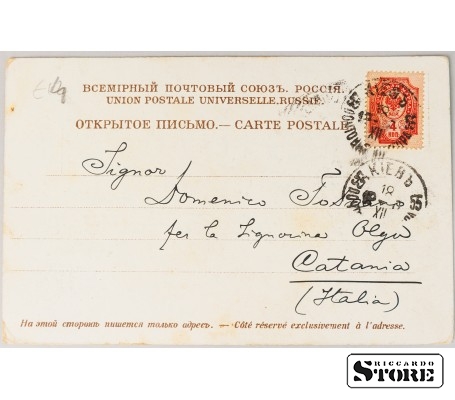 ВСЕМІРНЫЙ ПОЧТОВЫЙ СОЮЗЪ. РОССІЯ.
UNION POSTALE UNIVERSELLE. RUSSIE.
ОТКРЫТОЕ ПИСЬМО. — CARTE POSTALE
КІЕВЪ
4
КОП
КІЕВЪ
18
XII
55
Signor
Domenico
per la Signorina Olga
Catania
(Italia)
На этой сторонѣ пишется только адресъ. — Côté réservé exclusivement à l'adresse.
RICCARDO
STORE